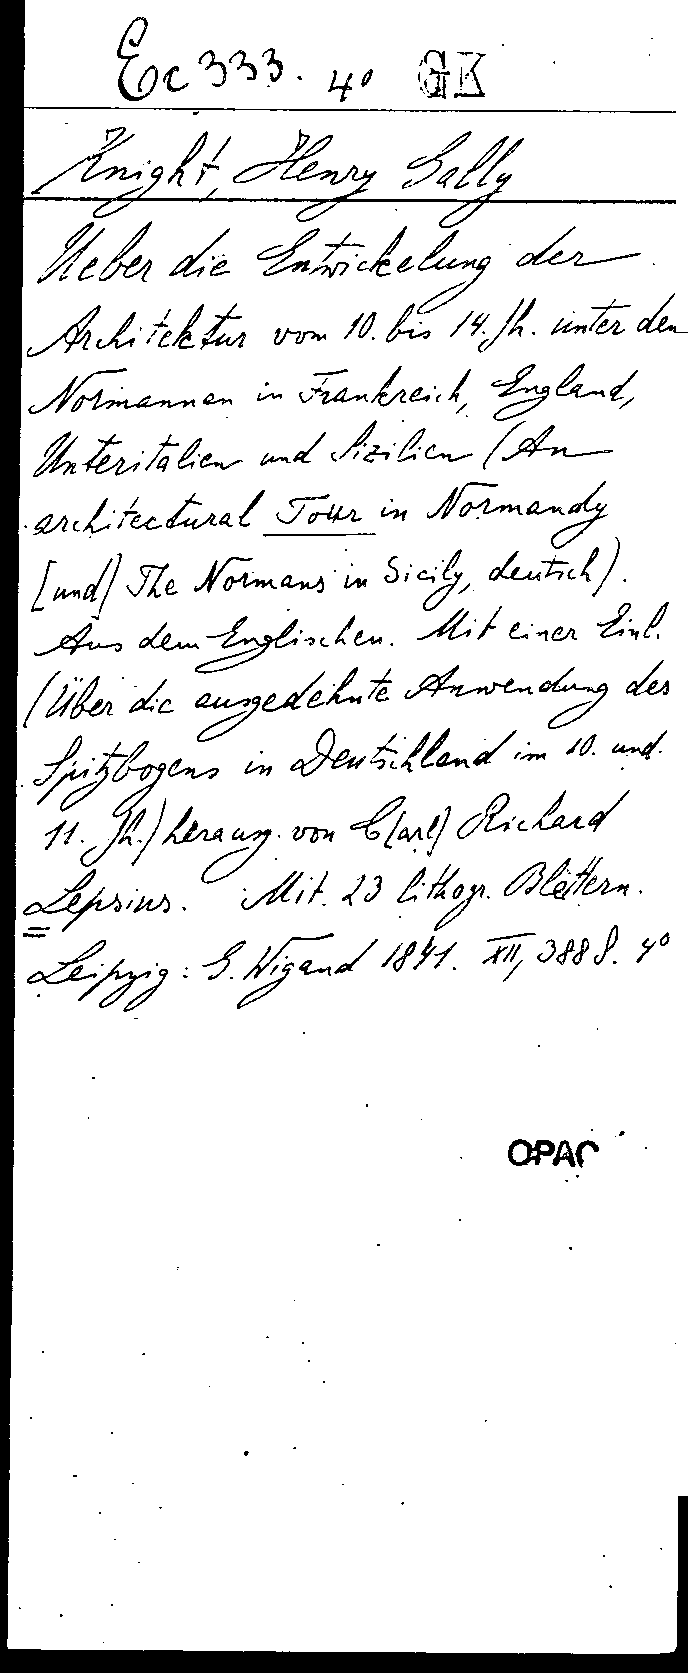 Ec 333. 4° GK
Knight, Henry Gally
Ueber die Entwickelung der
Architektur vom 10. bis 14. Jh. unter den
Normannen in Frankreich, England,
Unteritalien und Sizilien (An
architectural Tour in Normandy
[und] The Normans in Sicily, deutsch).
Aus dem Englischen. Mit einer Einl.
(Über die ausgedehnte Anwendung des
Spitzbogens in Deutschland im 10. und.
11. Jh.) herausg. von C(arl) Richard
Lepsius. Mit. 23 lithogr. Blättern.
Leipzig: G. Wigand 1841. XII, 388 S. 4°
OPAC